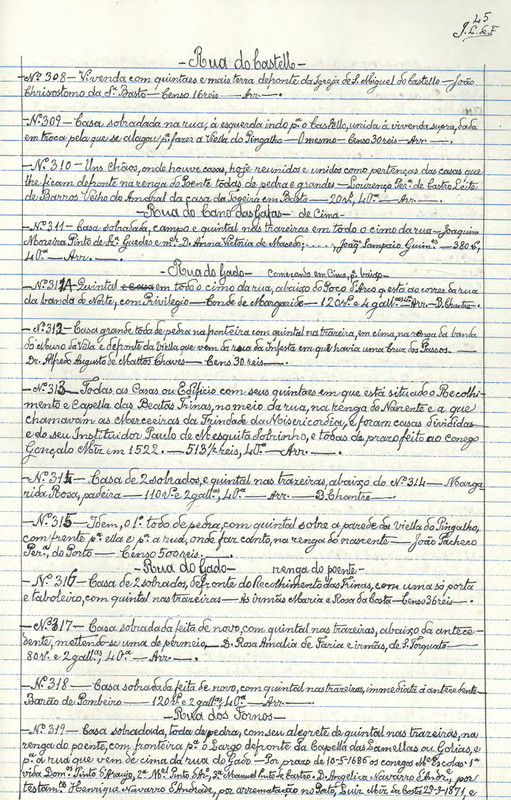 45
J. L. de F.
— Rua do Castello —
— Nº 308 — Vivenda com quintaes e mais terra defronte da Igreja de S. Miguel do Castello — João
Chrisostomo da Sª Basto — Censo 16 reis — Arr. — .
— Nº 309 — Casa sobradada na rua, á esquerda indo pª o Castello, unida á vivenda supra, dada
em troca pela que se alagou pª fazer a Viella do Pingalho — O mesmo — Censo 30 reis — Arr. — .
— Nº 310 — Uns chãos, onde houve casas, hoje reunidos e unidos como pertenças das casas que
lhe ficam defronte na renga do Poente todas de pedra e grandes — Lourenço Perª de Castro Leite
de Barros Velho do Amaral da casa da Togeira em Basto — 20 rs, 40ª — Arr. — .
— Rua do Cano das Gafas — de Cima —
— Nº 311 — Casa sobradada, campo e quintal nas trazeiras em todo o cimo da rua — Joaquim
Moreira Pinto de Guedes e mer D. Anna Victoria de Macedo; ...., João Sampaio Guimes — 380 rs,
40ª — Arr. — .
— Rua do Gado — começando em Cima, pª baixo —
— Nº 311A Quintal em todo o cimo da rua, abaixo do Poço d'Arco q. está ao correr da rua
da banda do Norte, com Privilegio — Conde de Margaride — 120 rs e 4 gallas — Arr. — B. Chantre — .
— Nº 312 — Casa grande toda de pedra na fronteira com quintal na trazeira, em cima, na renga da banda
do muro da Villa e defronte da Viella que vem da rua da Infesta em que havia uma Cruz dos Passos. —
Dr. Alfredo Augusto de Mattos Chaves — Censo 30 reis — .
— Nº 313 — Todas as Casas ou Edificio com seus quintaes em que está situado o Recolhi-
mento e Capella das Beatas Trinas, no meio da rua, na renga do Nascente e a que
chamavam as Merceeiras da Trindade da Misericordia, e foram casas divididas
e do seu Instituidor Paulo de Mesquita Sobrinho, e todas de prazo feito ao conego
Gonçalo Miz em 1522. — 513½ reis, 40ª — Arr. — .
— Nº 314 — Casa de 2 sobrados, e quintal nas trazeiras, abaixo do Nº 314 — Marga-
rida Rosa, padeira — 110 rs e 2 gallas, 40ª — Arr. — B. Chantre — .
— Nº 315 — Idem, o 1º todo de pedra, com quintal sobre a parede da viella do Pingalho,
com frente pª ella e pª a rua, onde faz canto, na renga do nascente — João Pacheco
Perª, do Porto — Censo 500 reis. — .
— Rua do Gado — renga do poente —
— Nº 316 — Casa de 2 sobrados, defronte do Recolhimento das Trinas, com uma só porta
e taboleiro, com quintal nas trazeiras — As irmãs Maria e Rosa da Costa — Censo 36 reis — .
— Nº 317 — Casa sobradada feita de novo, com quintal nas trazeiras, abaixo da antece-
dente, mettendo-se uma de permeio — D. Rosa Amalia de Faria e irmãs, de S. Torquato
80 rs e 2 gallas, 40ª — Arr. — .
— Nº 318 — Casa sobradada feita de novo, com quintal nas trazeiras, immediata á antecedente —
Barão de Pombeiro — 120 rs e 2 gallas, 40ª — Arr. — .
— Rua dos Fornos —
— Nº 319 — Casa sobradada, toda de pedra, com seu alegrete de quintal nas trazeiras, na
renga do poente, com fronteira pª o Largo defronte da Capella das Lamellas ou Golias, e
pª a rua que vem de cima da rua do Gado — Por prazo de 10-5-1686 os conegos Mel Escolas: 1ª
vida Domos Pinto d'Araujo, 2ª Mel Pinto d'Arº, 3ª Manuel Pinto de Castro. D. Angelica Navarro d'Andre, por
testamto Henrique Navarro d'Andrade, por arrematação no Porto, Luiz Miz da Costa 29-3-1871, e